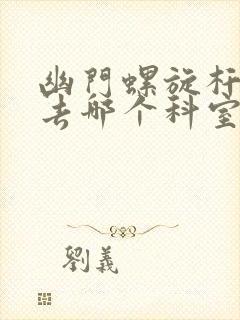 幽門螺旋杆
去哪个科室
劉義